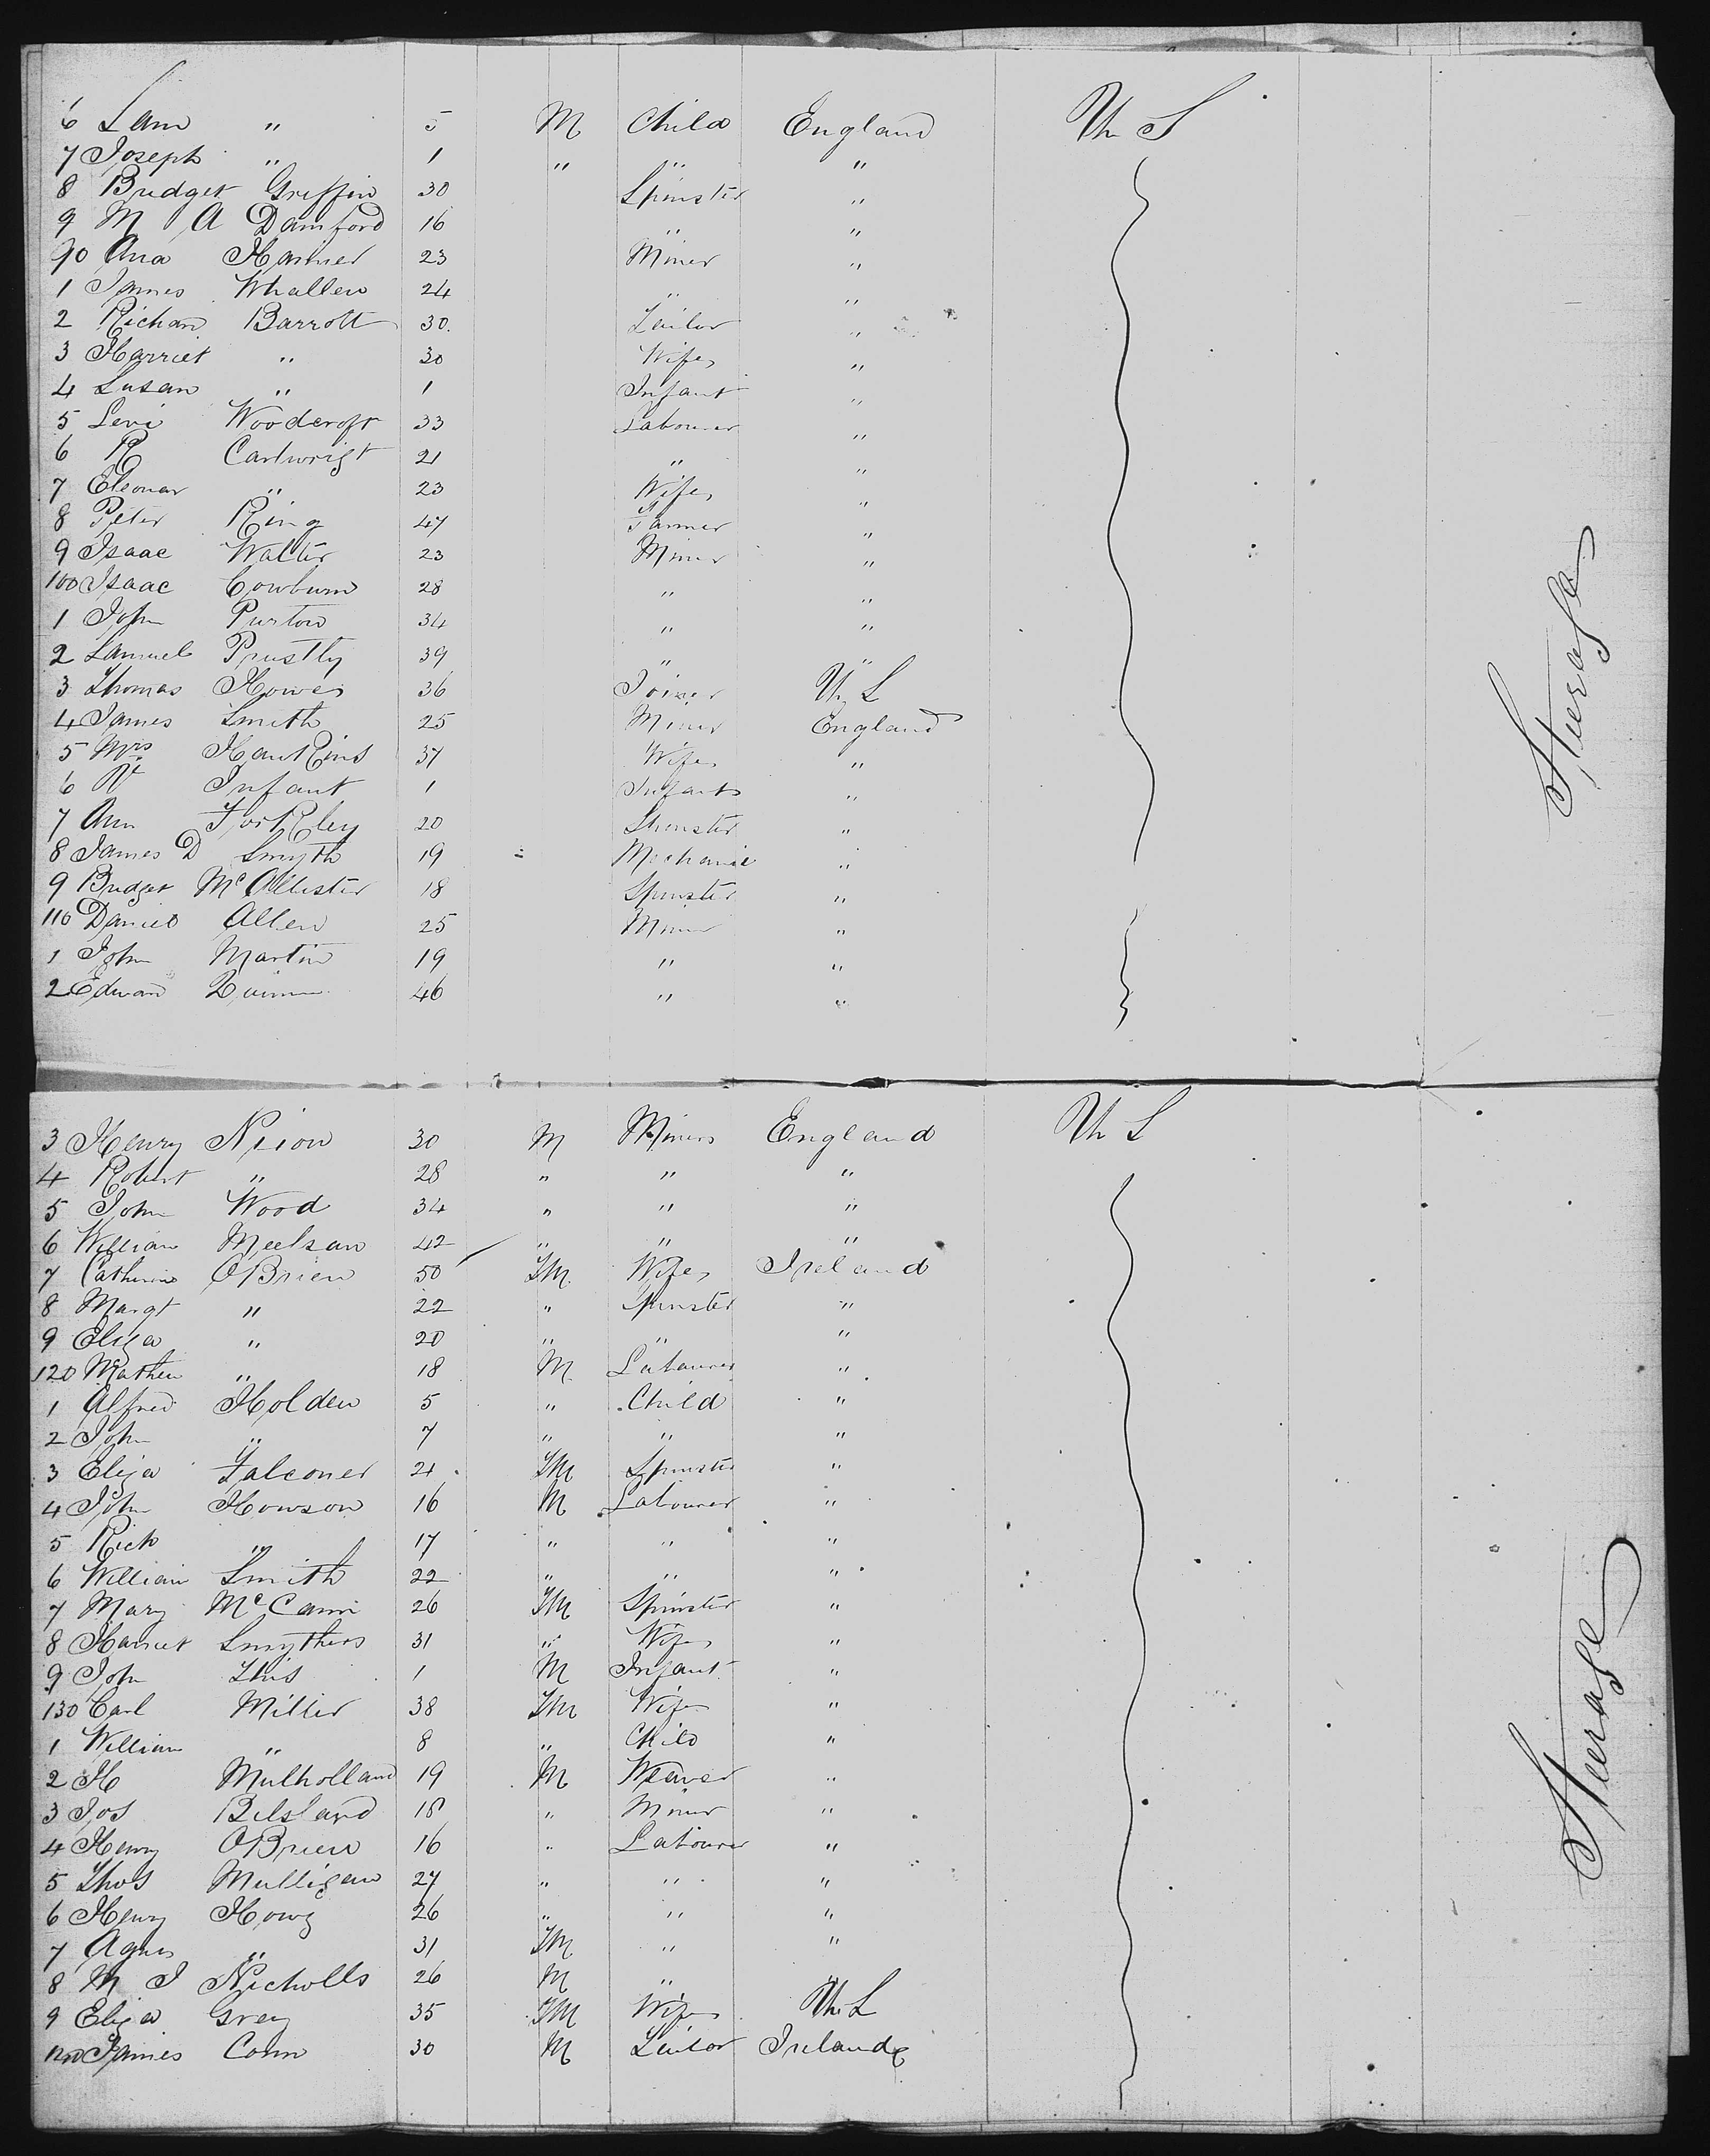 6 Sam " 5 M Child England U S
7 Joseph " 1 " " "
8 Bridget Griffin 30 Spinster "
9 M A Damford 16 " "
90 Ana Harmer 23 Miner "
1 James Whallen 24 " "
2 Richard Barrott 30. Tailor "
3 Harriet " 30 Wife "
4 Susan " 1 Infant "
5 Levi Woodcroft 33 Labourer "
6 R Cartwrigt 21 " "
7 Eleonar " 23 Wife "
8 Peter King 47 Farmer "
9 Isaac Walter 23 Miner "
100 Isaac Cowburn 28 " "
1 John Purton 34 " "
2 Samuel Prustly 39 " "
3 Thomas Howes 36 Joiner U S
4 James Smith 25 Miner England
5 Mrs Hawkins 37 Wife "
6 Infant 1 Infant "
7 Ann Forkley 20 Spinster "
8 James D Smyth 19 Mechanic "
9 Bridget McAllister 18 Spinster "
110 Daniel Allen 25 Miner "
1 John Martin 19 " "
2 Edward Quinn 46 " "
Steerage
3 Henry Nixon 30 M Miners England U S
4 Robert " 28 " " "
5 John Wood 34 " " "
6 William Meelsan 42 " " "
7 Catherine OBrien 50 FM Wife Ireland
8 Margt " 22 " Spinster "
9 Eliza " 20 " " "
120 Mathew " 18 M Labourer "
1 Alfred Holden 5 " Child "
2 John " 7 " " "
3 Eliza Falconer 21 FM Spinster "
4 John Howson 16 M Labourer "
5 Rich " 17 " " "
6 William Smith 22 " " "
7 Mary McCann 26 FM Spinster "
8 Harriet Smythers 31 " Wife "
9 John This 1 M Infant "
130 Carl Miller 38 FM Wife "
1 William " 8 " Child "
2 H Mulholland 19 M Weaver "
3 Jos Bilsland 18 " Miner "
4 Henry OBrien 16 " Labourer "
5 Thos Mulligan 27 " " "
6 Henry Howg 26 " " "
7 Agnes " 31 FM " "
8 M J Nicholls 26 M " "
9 Eliza Grey 35 FM Wife U S
140 James Conn 30 M Tailor Ireland
Steerage